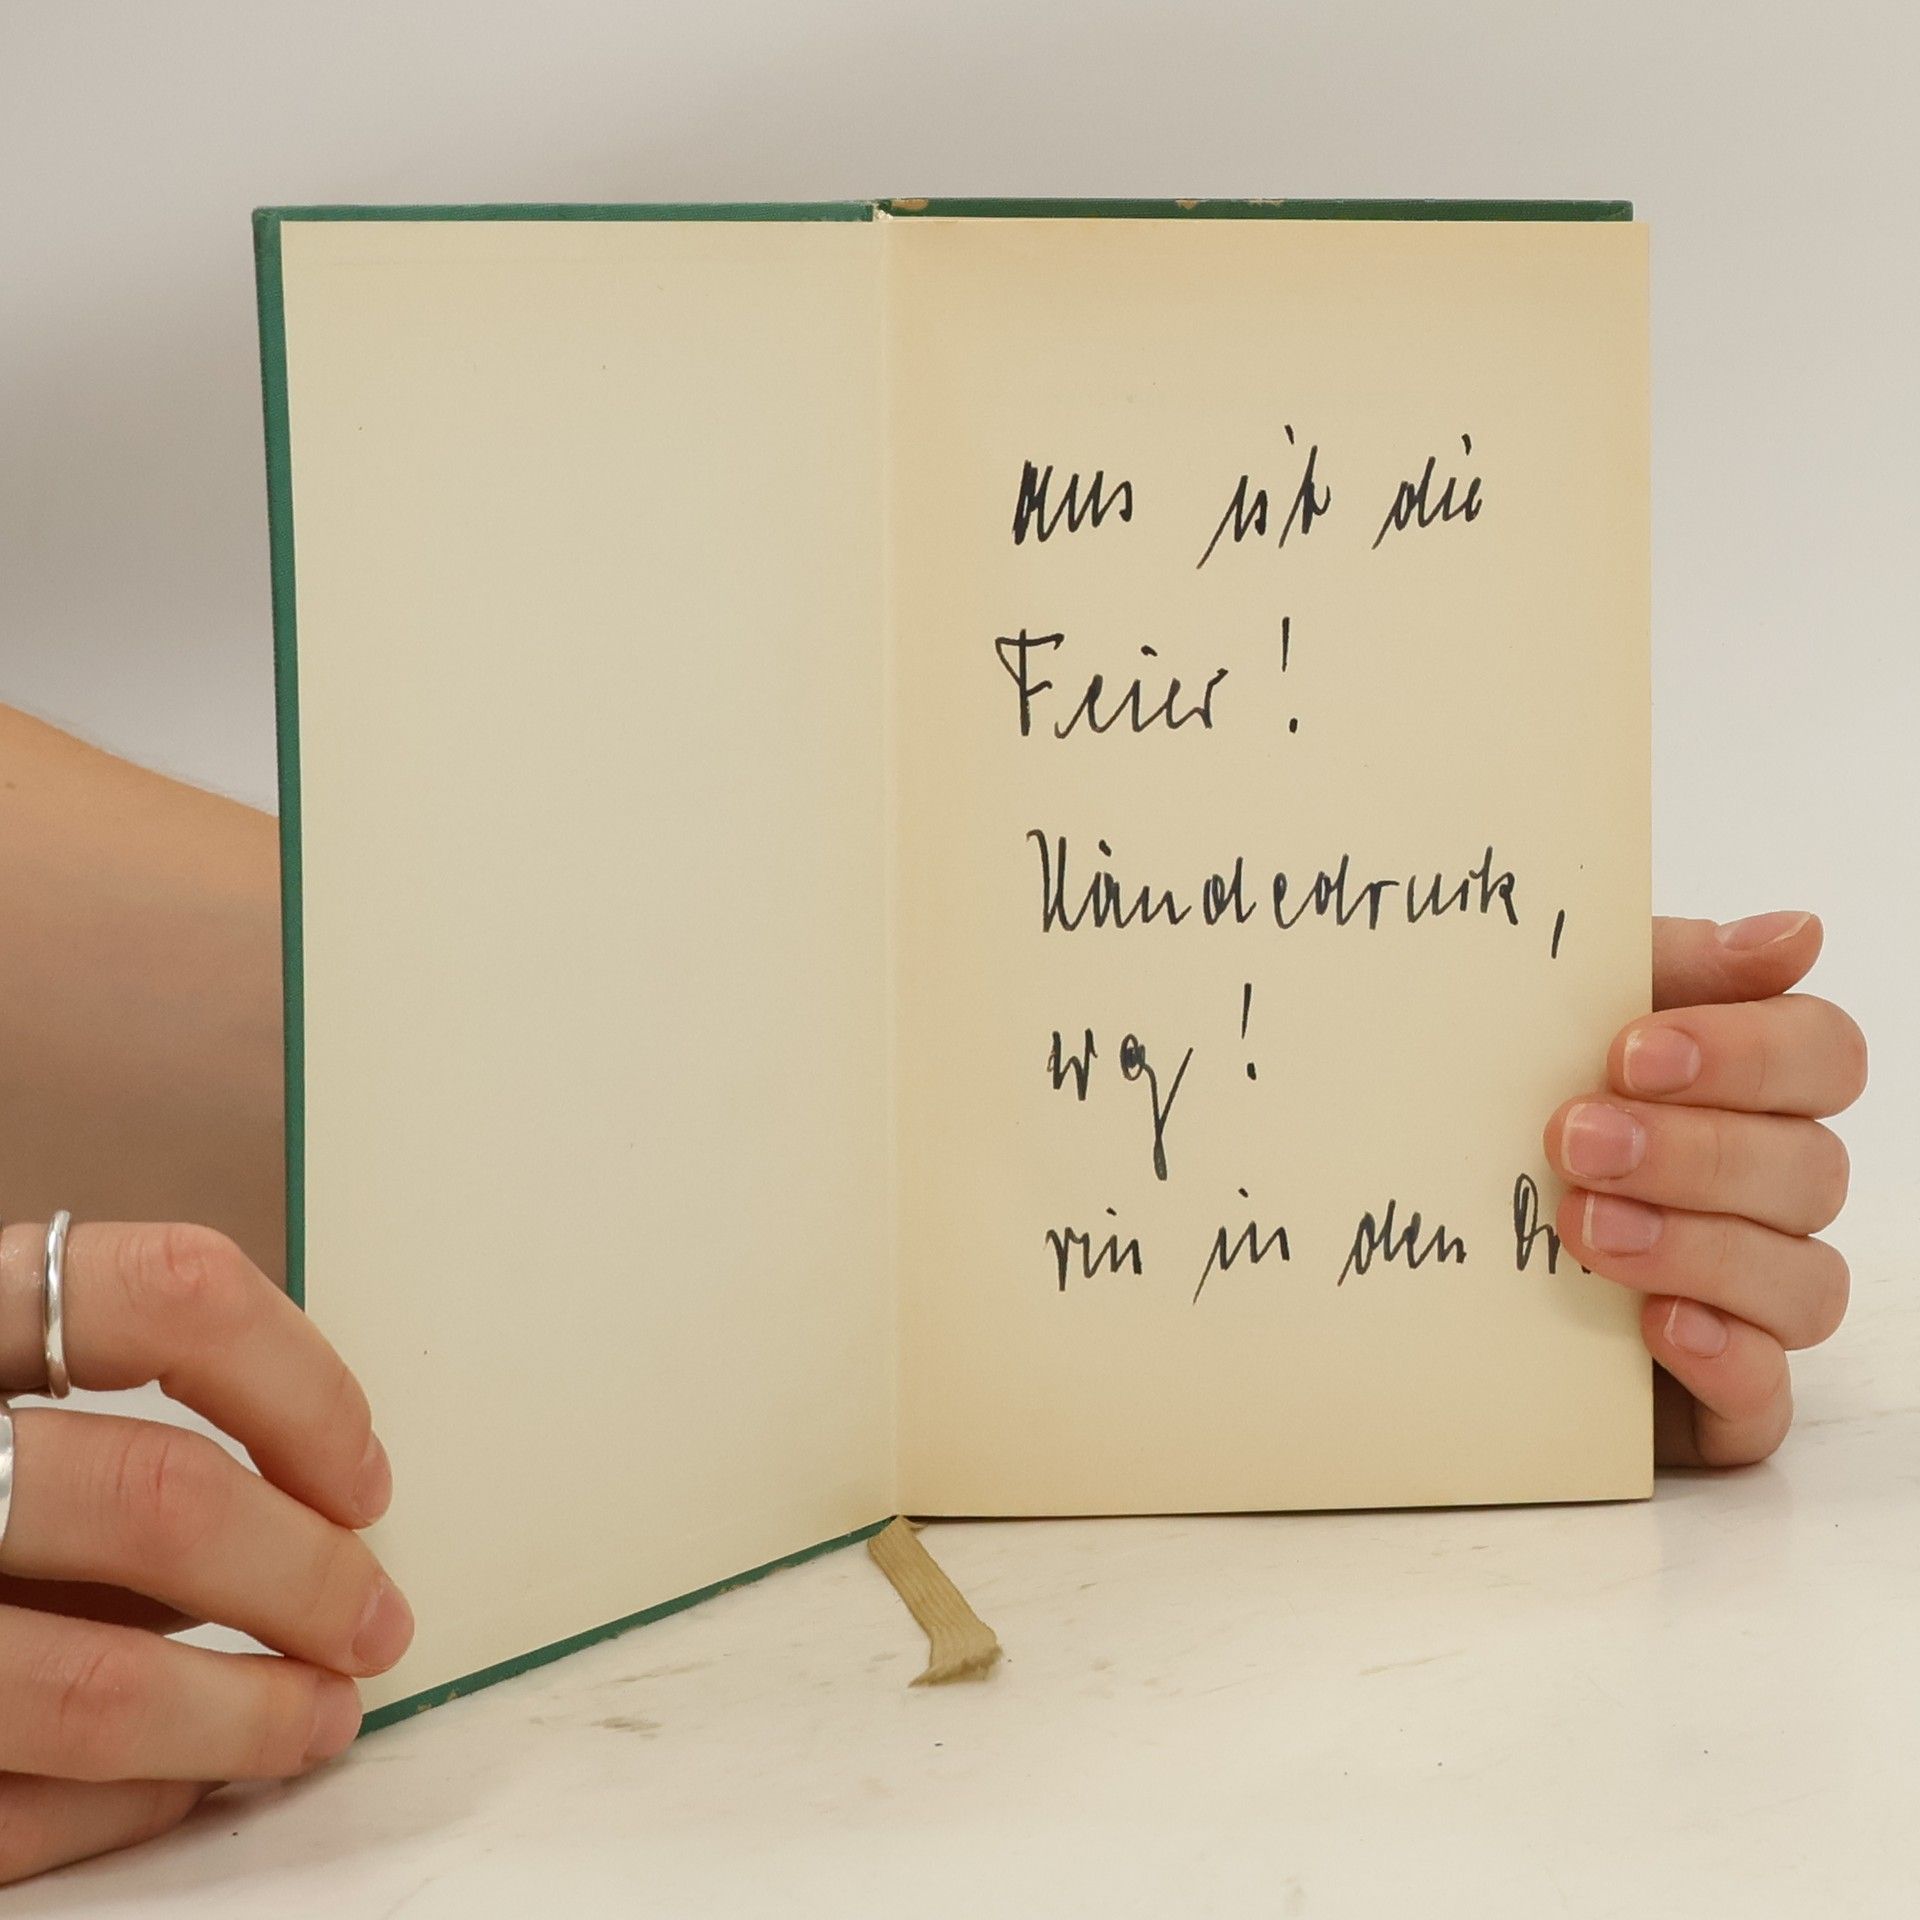 aus ist die
Feier!
Händedruck,
weg!
rin in den